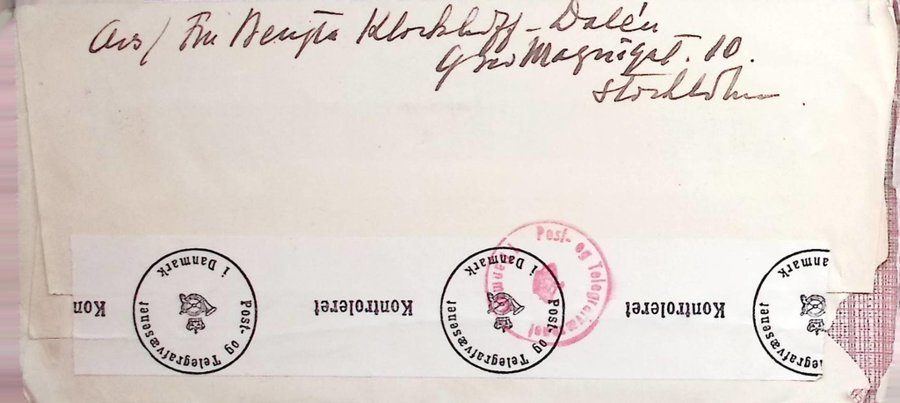 Avs/ Fru Bengta Klockhoff-Dalén
Grev Magnigat. 10.
Stockholm
Post- og Telegrafvæsenet i Danmark
Kon
Post- og Telegrafvæsenet
i Danmark
Kontrolleret
Post- og Telegrafvæsenet
i Danmark
Kontrolleret
anmark
væsenet